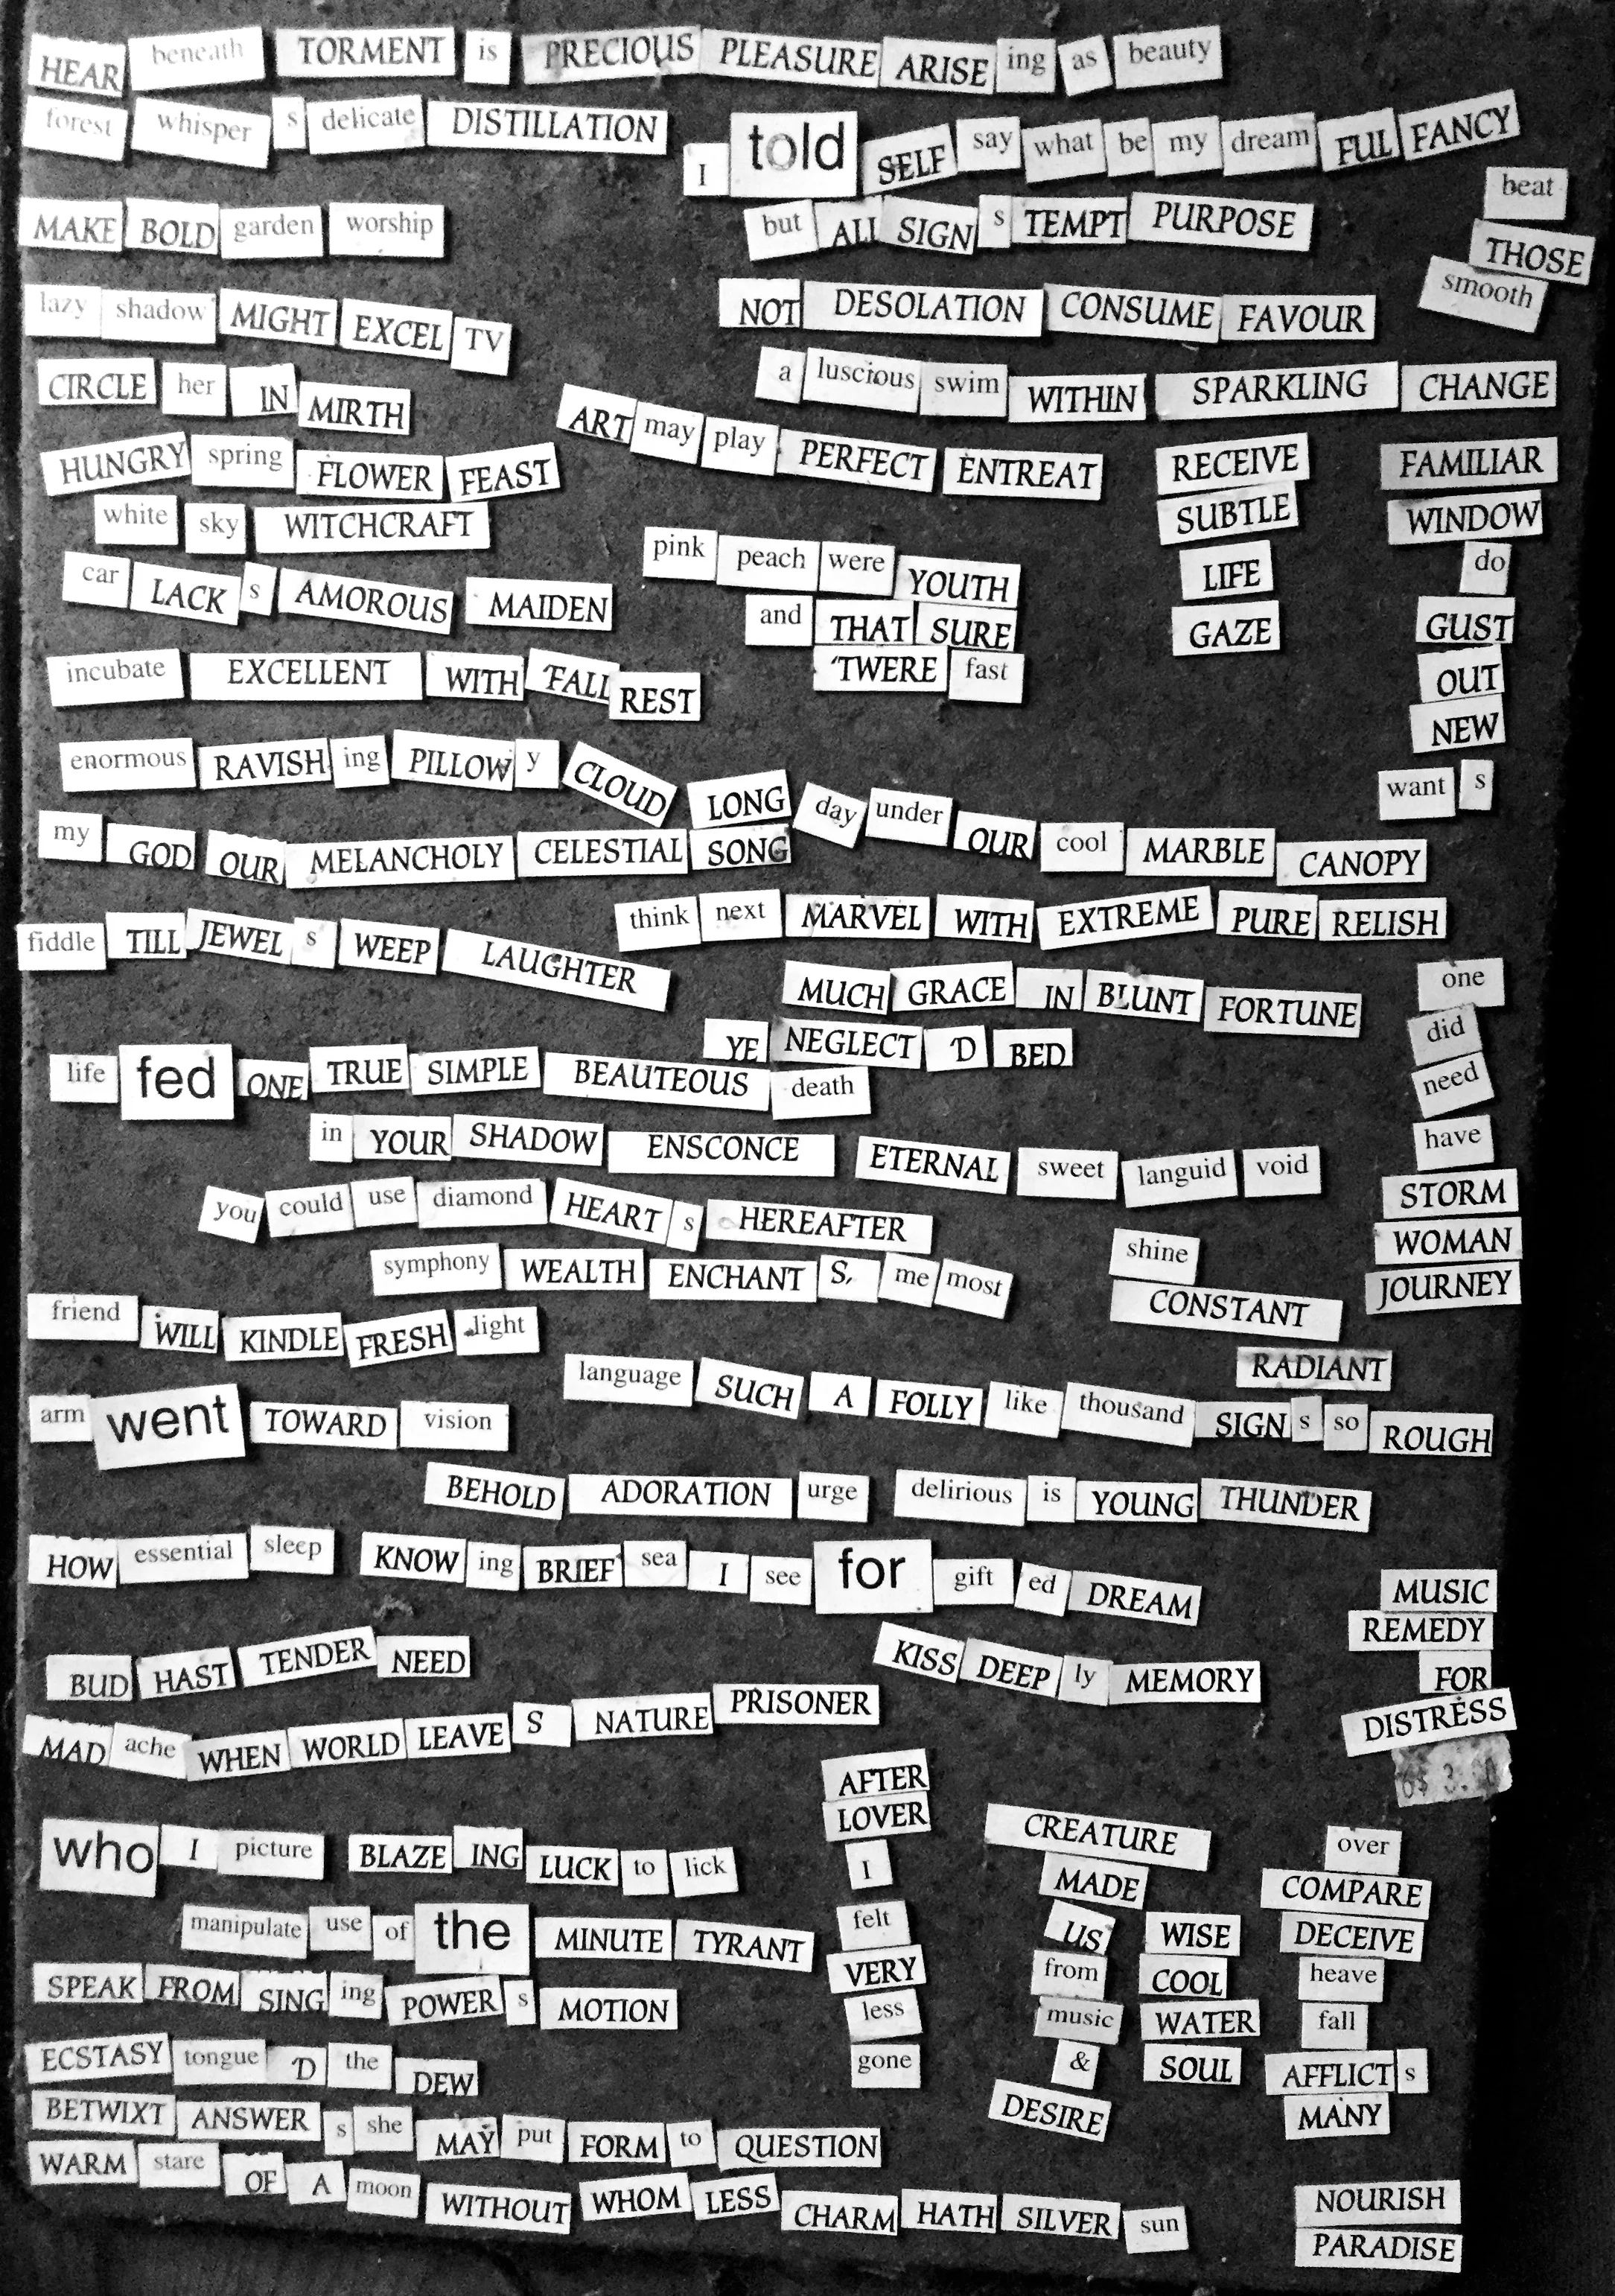 HEAR beneath TORMENT is PRECIOUS PLEASURE ARISE ing as beauty
forest whisper s delicate DISTILLATION
I told SELF say what be my dream FUL FANCY
MAKE BOLD garden worship
but ALL SIGN s TEMPT PURPOSE
beat
THOSE
smooth
lazy shadow MIGHT EXCEL TV
NOT DESOLATION CONSUME FAVOUR
CIRCLE her IN MIRTH
a luscious swim WITHIN SPARKLING CHANGE
ART may play PERFECT ENTREAT
HUNGRY spring FLOWER FEAST
white sky WITCHCRAFT
RECEIVE
SUBTLE
LIFE
GAZE
FAMILIAR
WINDOW
do
GUST
OUT
NEW
want s
pink peach were YOUTH
and THAT SURE
'TWERE fast
car LACK s AMOROUS MAIDEN
incubate EXCELLENT WITH 'FALL REST
enormous RAVISH ing PILLOW y CLOUD
LONG day under OUR cool MARBLE CANOPY
my GOD OUR MELANCHOLY CELESTIAL SONG
think next MARVEL WITH EXTREME PURE RELISH
fiddle TILL JEWEL s WEEP LAUGHTER
MUCH GRACE IN BLUNT FORTUNE
YE NEGLECT 'D BED
one
did
need
have
STORM
WOMAN
JOURNEY
life fed ONE TRUE SIMPLE BEAUTEOUS death
in YOUR SHADOW ENSCONCE ETERNAL sweet languid void
you could use diamond HEART s HEREAFTER
symphony WEALTH ENCHANT S, me most
shine
CONSTANT
RADIANT
friend WILL KINDLE FRESH light
language SUCH A FOLLY like thousand SIGN s so ROUGH
arm went TOWARD vision
BEHOLD ADORATION urge delirious is YOUNG THUNDER
HOW essential sleep KNOW ing BRIEF sea I see for gift ed DREAM
MUSIC
REMEDY
FOR
DISTRESS
BUD HAST TENDER NEED
KISS DEEP ly MEMORY
MAD ache WHEN WORLD LEAVE S NATURE PRISONER
AFTER
LOVER
I
felt
VERY
less
gone
CREATURE
MADE
US
from
music
&
DESIRE
WISE
COOL
WATER
SOUL
over
COMPARE
DECEIVE
heave
fall
AFFLICT s
MANY
who I picture BLAZE ING LUCK to lick
manipulate use of the MINUTE TYRANT
SPEAK FROM SING ing POWER s MOTION
ECSTASY tongue 'D the DEW
BETWIXT ANSWER s she MAY put FORM to QUESTION
WARM stare OF A moon WITHOUT WHOM LESS CHARM HATH SILVER sun
NOURISH
PARADISE